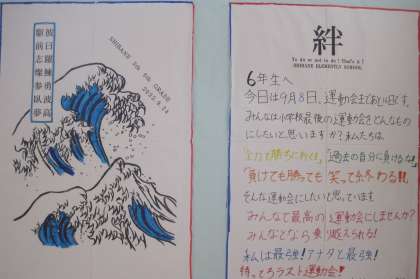 SHIBANE 5th 6th GRADE
2023.9.24
絆
To do or not to do! That's it!
SHIBANE ELEMENTLY SCHOOL
6年生へ
今日は9月8日、運動会まであと16日です。
みんなは小学校最後の運動会をどんなもの
にしたいと思いますか?私たちは、
「全力で勝ちにいく!」「過去の自分に負けるな!」
「負けても勝っても笑って終わる!!」
そんな運動会にしたいと思っています
みんなで最高の運動会にしませんか?
みんなとなら乗り越えられる!
私しは最強!アナタと最強!
待ってろラスト運動会!